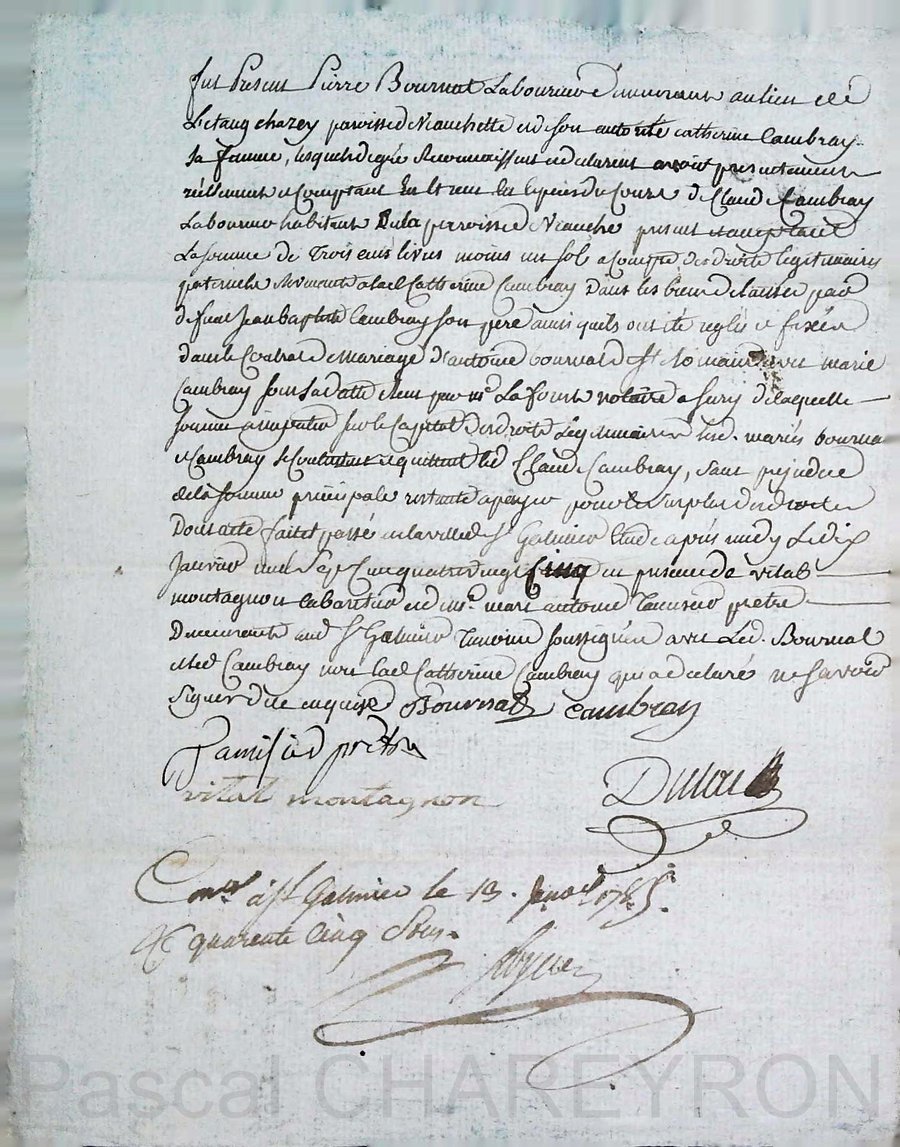 fut Present Pierre Bournat Laboureur demeurant au lieu de
Letang chazey paroisse de Neauchette et de son autorité catherine Cambray
Sa femme, lesquels de gré Reconnaissent et declarent avoir presentement
réellement et Comptant En especes du Cours de Claude Cambray
Laboureur habitant de la paroisse de Neauche present
La somme de Trois cens livres moins un sol a Compte des droits légitimaires
paternels a lad Catherine Cambray Dans les biens delaissés par
defunt Jean baptiste Cambray son pere ainsi quils ont été reglés et fixés
dans le Contrat de Mariage d'antoine bournat de St Romain avec marie
Cambray sous sa datte Reçu par me La font notaire a Sury de laquelle
somme a imputer sur le Capital des droits Légitimaires Lesd. mariés bournat
et Cambray se Contentent et quittent led Claude Cambray, sans prejudice
de la somme principale restante a payer pour le surplus des droits
Dont acte fait et passé en la ville de St Galmier Etude après midy Le dix
Janvier mil Sept Cent quatre vingt Cinq en presence de vital
montagnon cabaretier et de mre. marc antoine pretre
Demeurants aud St Galmier Temoins soussignés avec Led. Bournat
et led Cambray non lad Catherine Cambray qui a declaré ne savoir
Signer de ce enquise Bournat Cambray
prêtre
vital montagnon
Con.lé à St Galmier le 13. Janv. 1785.
R quarente Cinq Sous.